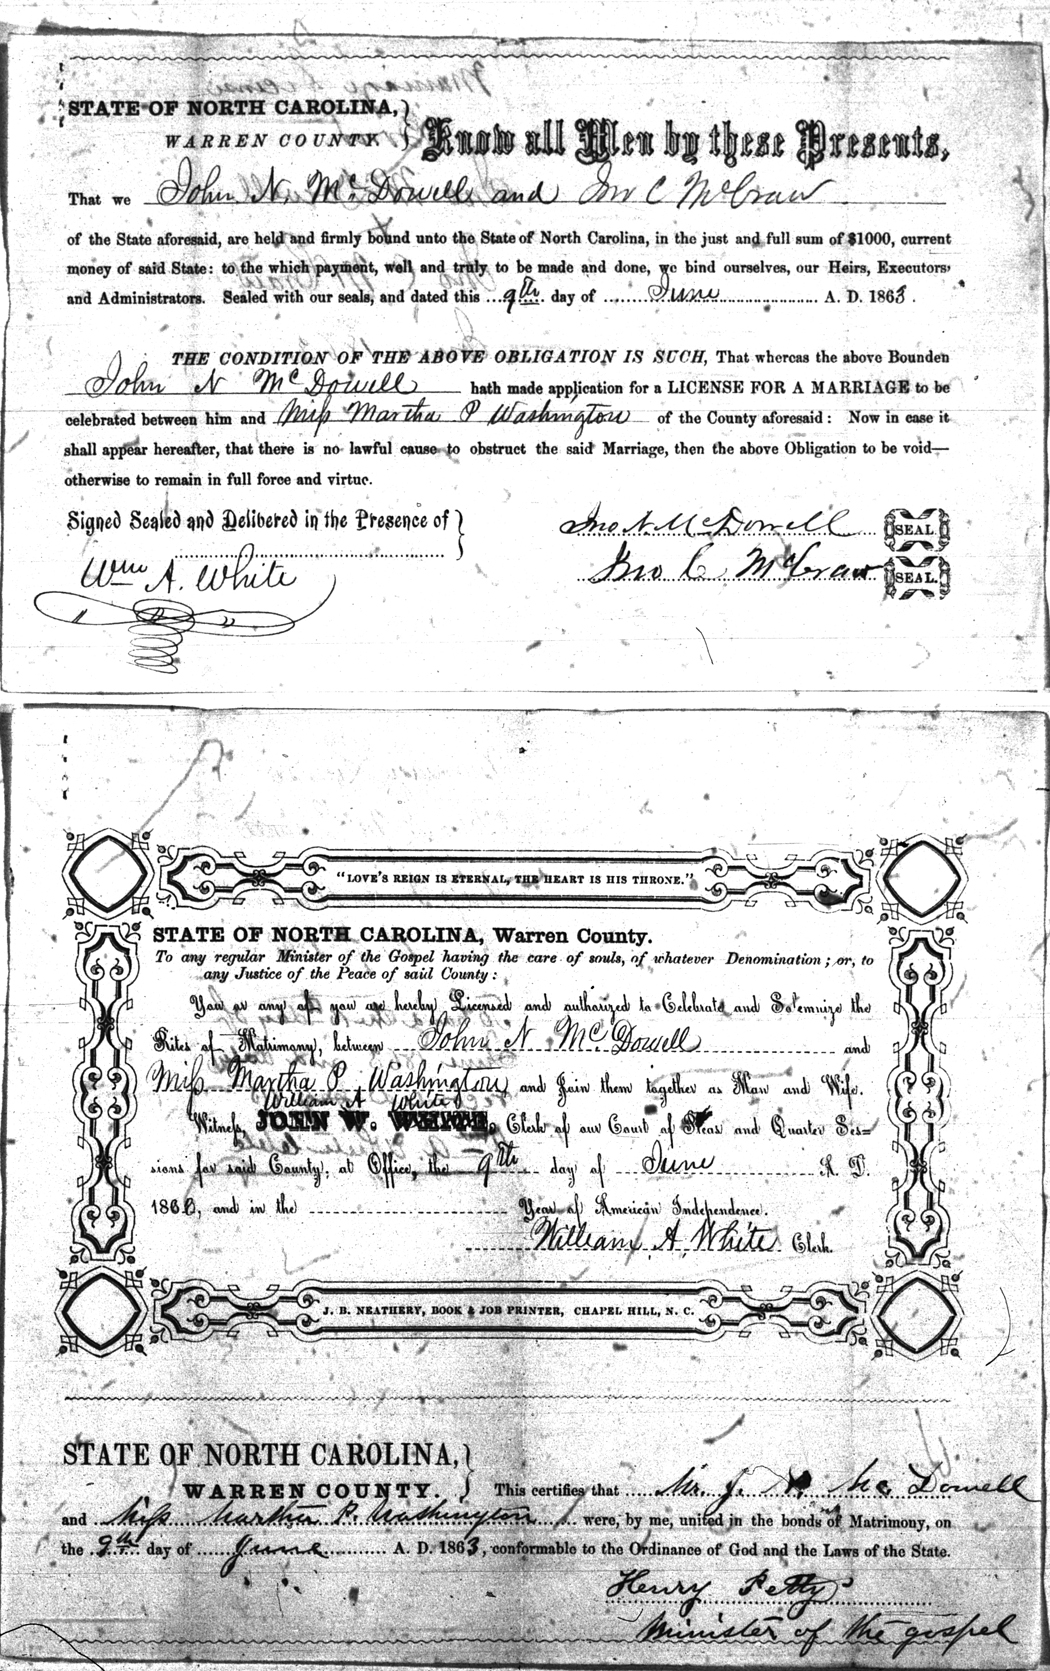 STATE OF NORTH CAROLINA,
WARREN COUNTY
Know all Men by these Presents,
That we John N. McDowell and Jno C McCraw
of the State aforesaid, are held and firmly bound unto the State of North Carolina, in the just and full sum of $1000, current
money of said State: to the which payment, well and truly to be made and done, we bind ourselves, our Heirs, Executors
and Administrators. Sealed with our seals, and dated this 9th day of June A. D. 1863.
THE CONDITION OF THE ABOVE OBLIGATION IS SUCH, That whereas the above Bounden
John N McDowell hath made application for a LICENSE FOR A MARRIAGE to be
celebrated between him and Miss Martha P Washington of the County aforesaid: Now in case it
shall appear hereafter, that there is no lawful cause to obstruct the said Marriage, then the above Obligation to be void—
otherwise to remain in full force and virtue.
Signed Sealed and Delibered in the Presence of
Jno. N. McDowell SEAL
Wm A. White
Jno C McCraw SEAL.
"LOVE'S REIGN IS ETERNAL, THE HEART IS HIS THRONE."
STATE OF NORTH CAROLINA, Warren County.
To any regular Minister of the Gospel having the care of souls, of whatever Denomination; or, to
any Justice of the Peace of said County:
You or any of you are hereby Licensed and authorized to Celebrate and Solemnize the
Rites of Matrimony, between John N McDowell and
Miss Martha P. Washington and Join them together as Man and Wife.
William A White
Witness, JOHN W. WHITE, Clerk of our Court of Pleas and Quarter Ses=
sions for said County, at Office, the 9th day of June A. D.
1863, and in the Year of American Independence.
William A. White Clerk.
J. B. NEATHERY, BOOK & JOB PRINTER, CHAPEL HILL, N. C.
STATE OF NORTH CAROLINA,
WARREN COUNTY.
This certifies that Mr. J. N. McDowell
and Miss Martha P. Washington were, by me, united in the bonds of Matrimony, on
the 9th day of June A. D. 1863, conformable to the Ordinance of God and the Laws of the State.
Henry Petty
Minister of the gospel